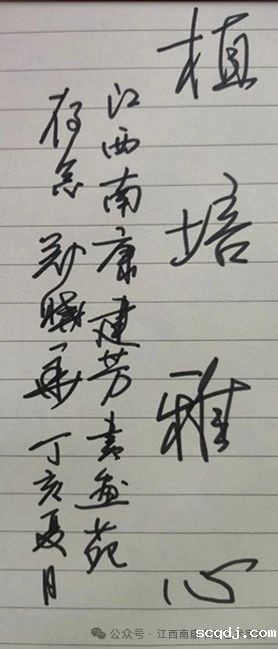 植培雅心
江西南康建芳书画苑
存念 丁亥夏月
公众号·江西南康
scqdj.com